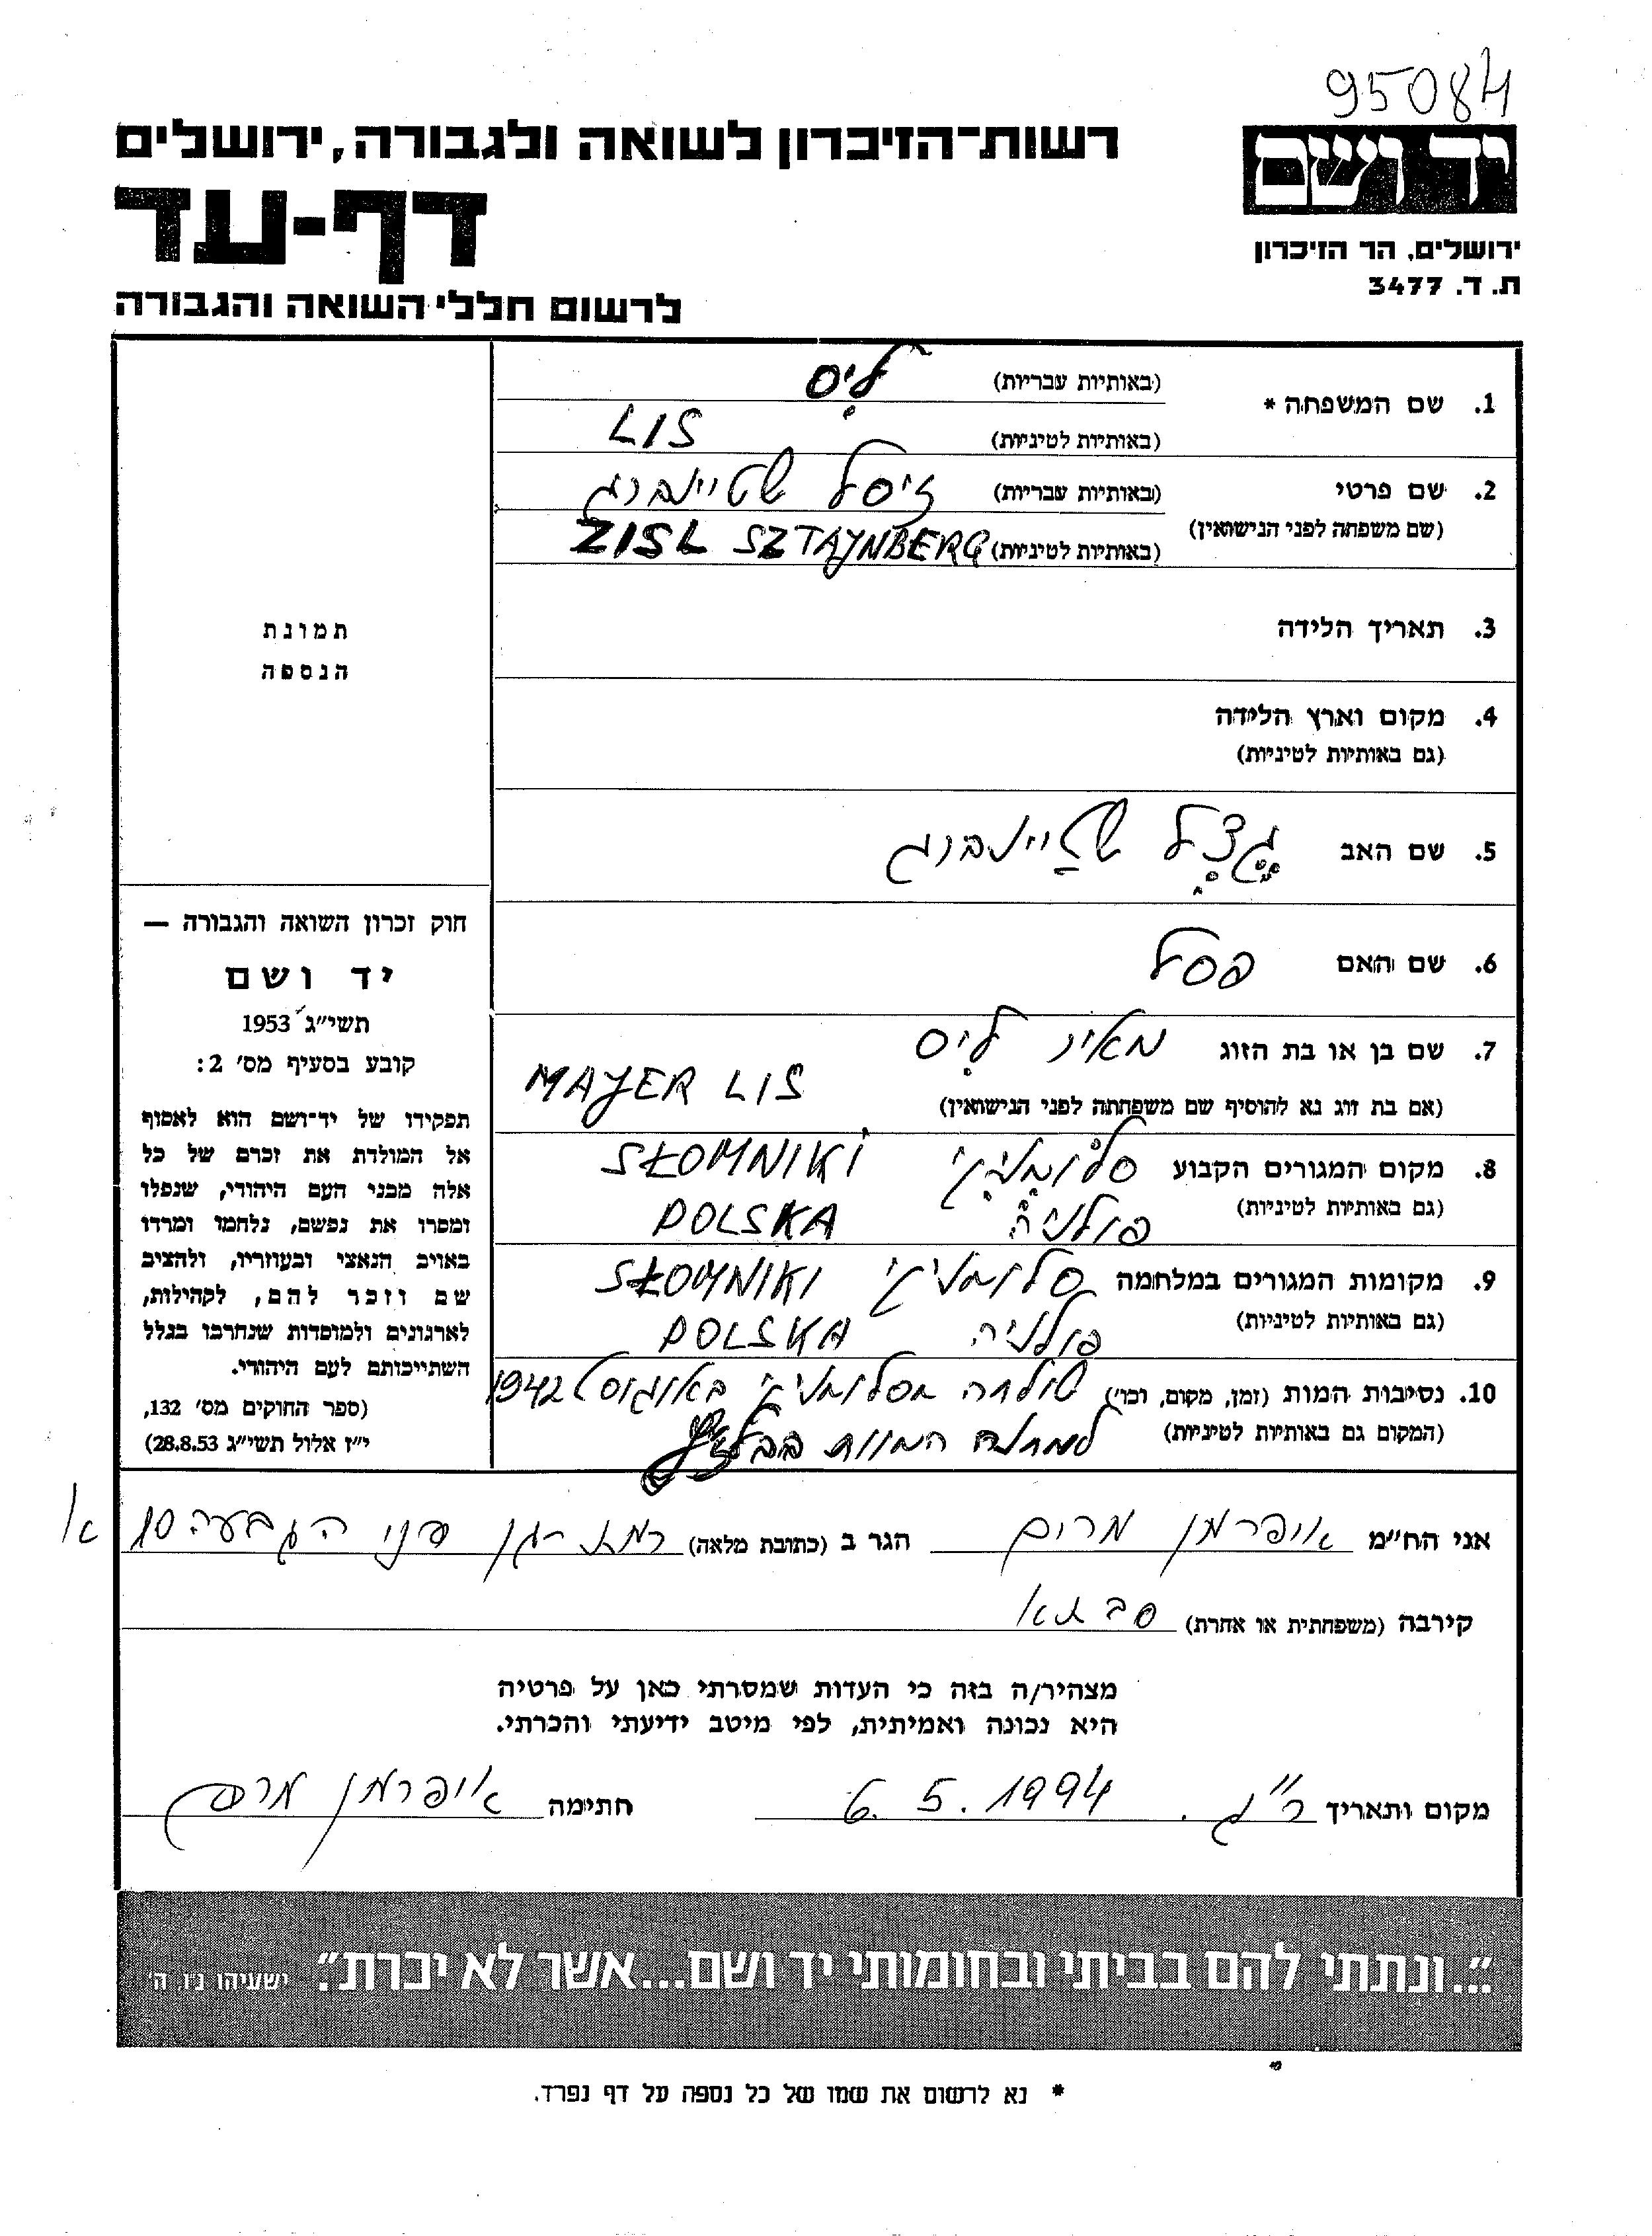 95084
יד ושם
ירושלים, הר הזיכרון
ת. ד. 3477
רשות־הזיכרון לשואה ולגבורה, ירושלים
דף-עד
לרשום חללי השואה והגבורה
1. שם המשפחה * (באותיות עבריות) לִיס
(באותיות לטיניות) LIS
2. שם פרטי (באותיות עבריות) זיסל שטיינברג
(שם משפחה לפני הנישואין) (באותיות לטיניות) ZISL SZTAJNBERG
3. תאריך הלידה
4. מקום וארץ הלידה
(גם באותיות לטיניות)
5. שם האב געציל שטיינברג
6. שם האם פסל
7. שם בן או בת הזוג מאיר לִיס
MAJER LIS
(אם בת זוג נא להוסיף שם משפחתה לפני הנישואין)
8. מקום המגורים הקבוע סלומניקי SŁOMNIKI
(גם באותיות לטיניות) פולניה POLSKA
9. מקומות המגורים במלחמה סלומניקי SŁOMNIKI
(גם באותיות לטיניות) פולניה POLSKA
10. נסיבות המות (זמן, מקום, וכו') שולחה מסלומניקי באוגוסט 1942
(המקום גם באותיות לטיניות) למחנה המוות בבלז'ץ
תמונת
הנספה
חוק זכרון השואה והגבורה —
יד ושם
תשי״ג 1953
קובע בסעיף מס' 2:
תפקידו של יד־ושם הוא לאסוף
אל המולדת את זכרם של כל
אלה מבני העם היהודי, שנפלו
ומסרו את נפשם, נלחמו ומרדו
באויב הנאצי ובעוזריו, ולהציב
שם וזכר להם, לקהילות,
לארגונים ולמוסדות שנחרבו בגלל
השתייכותם לעם היהודי.
(ספר החוקים מס' 132,
י״ז אלול תשי״ג 28.8.53)
אני הח״מ אופרמן מרים הגר ב (כתובת מלאה) רמת-גן הגבעה 10 א
קירבה (משפחתית או אחרת) סבתא
מצהיר/ה בזה כי העדות שמסרתי כאן על פרטיה
היא נכונה ואמיתית, לפי מיטב ידיעתי והכרתי.
מקום ותאריך ר״ג. 6.5.1994 חתימה אופרמן מרים
"...ונתתי להם בביתי ובחומותי יד ושם...אשר לא יכרת". ישעיהו נ"ו, ה'
* נא לרשום את שמו של כל נספה על דף נפרד.